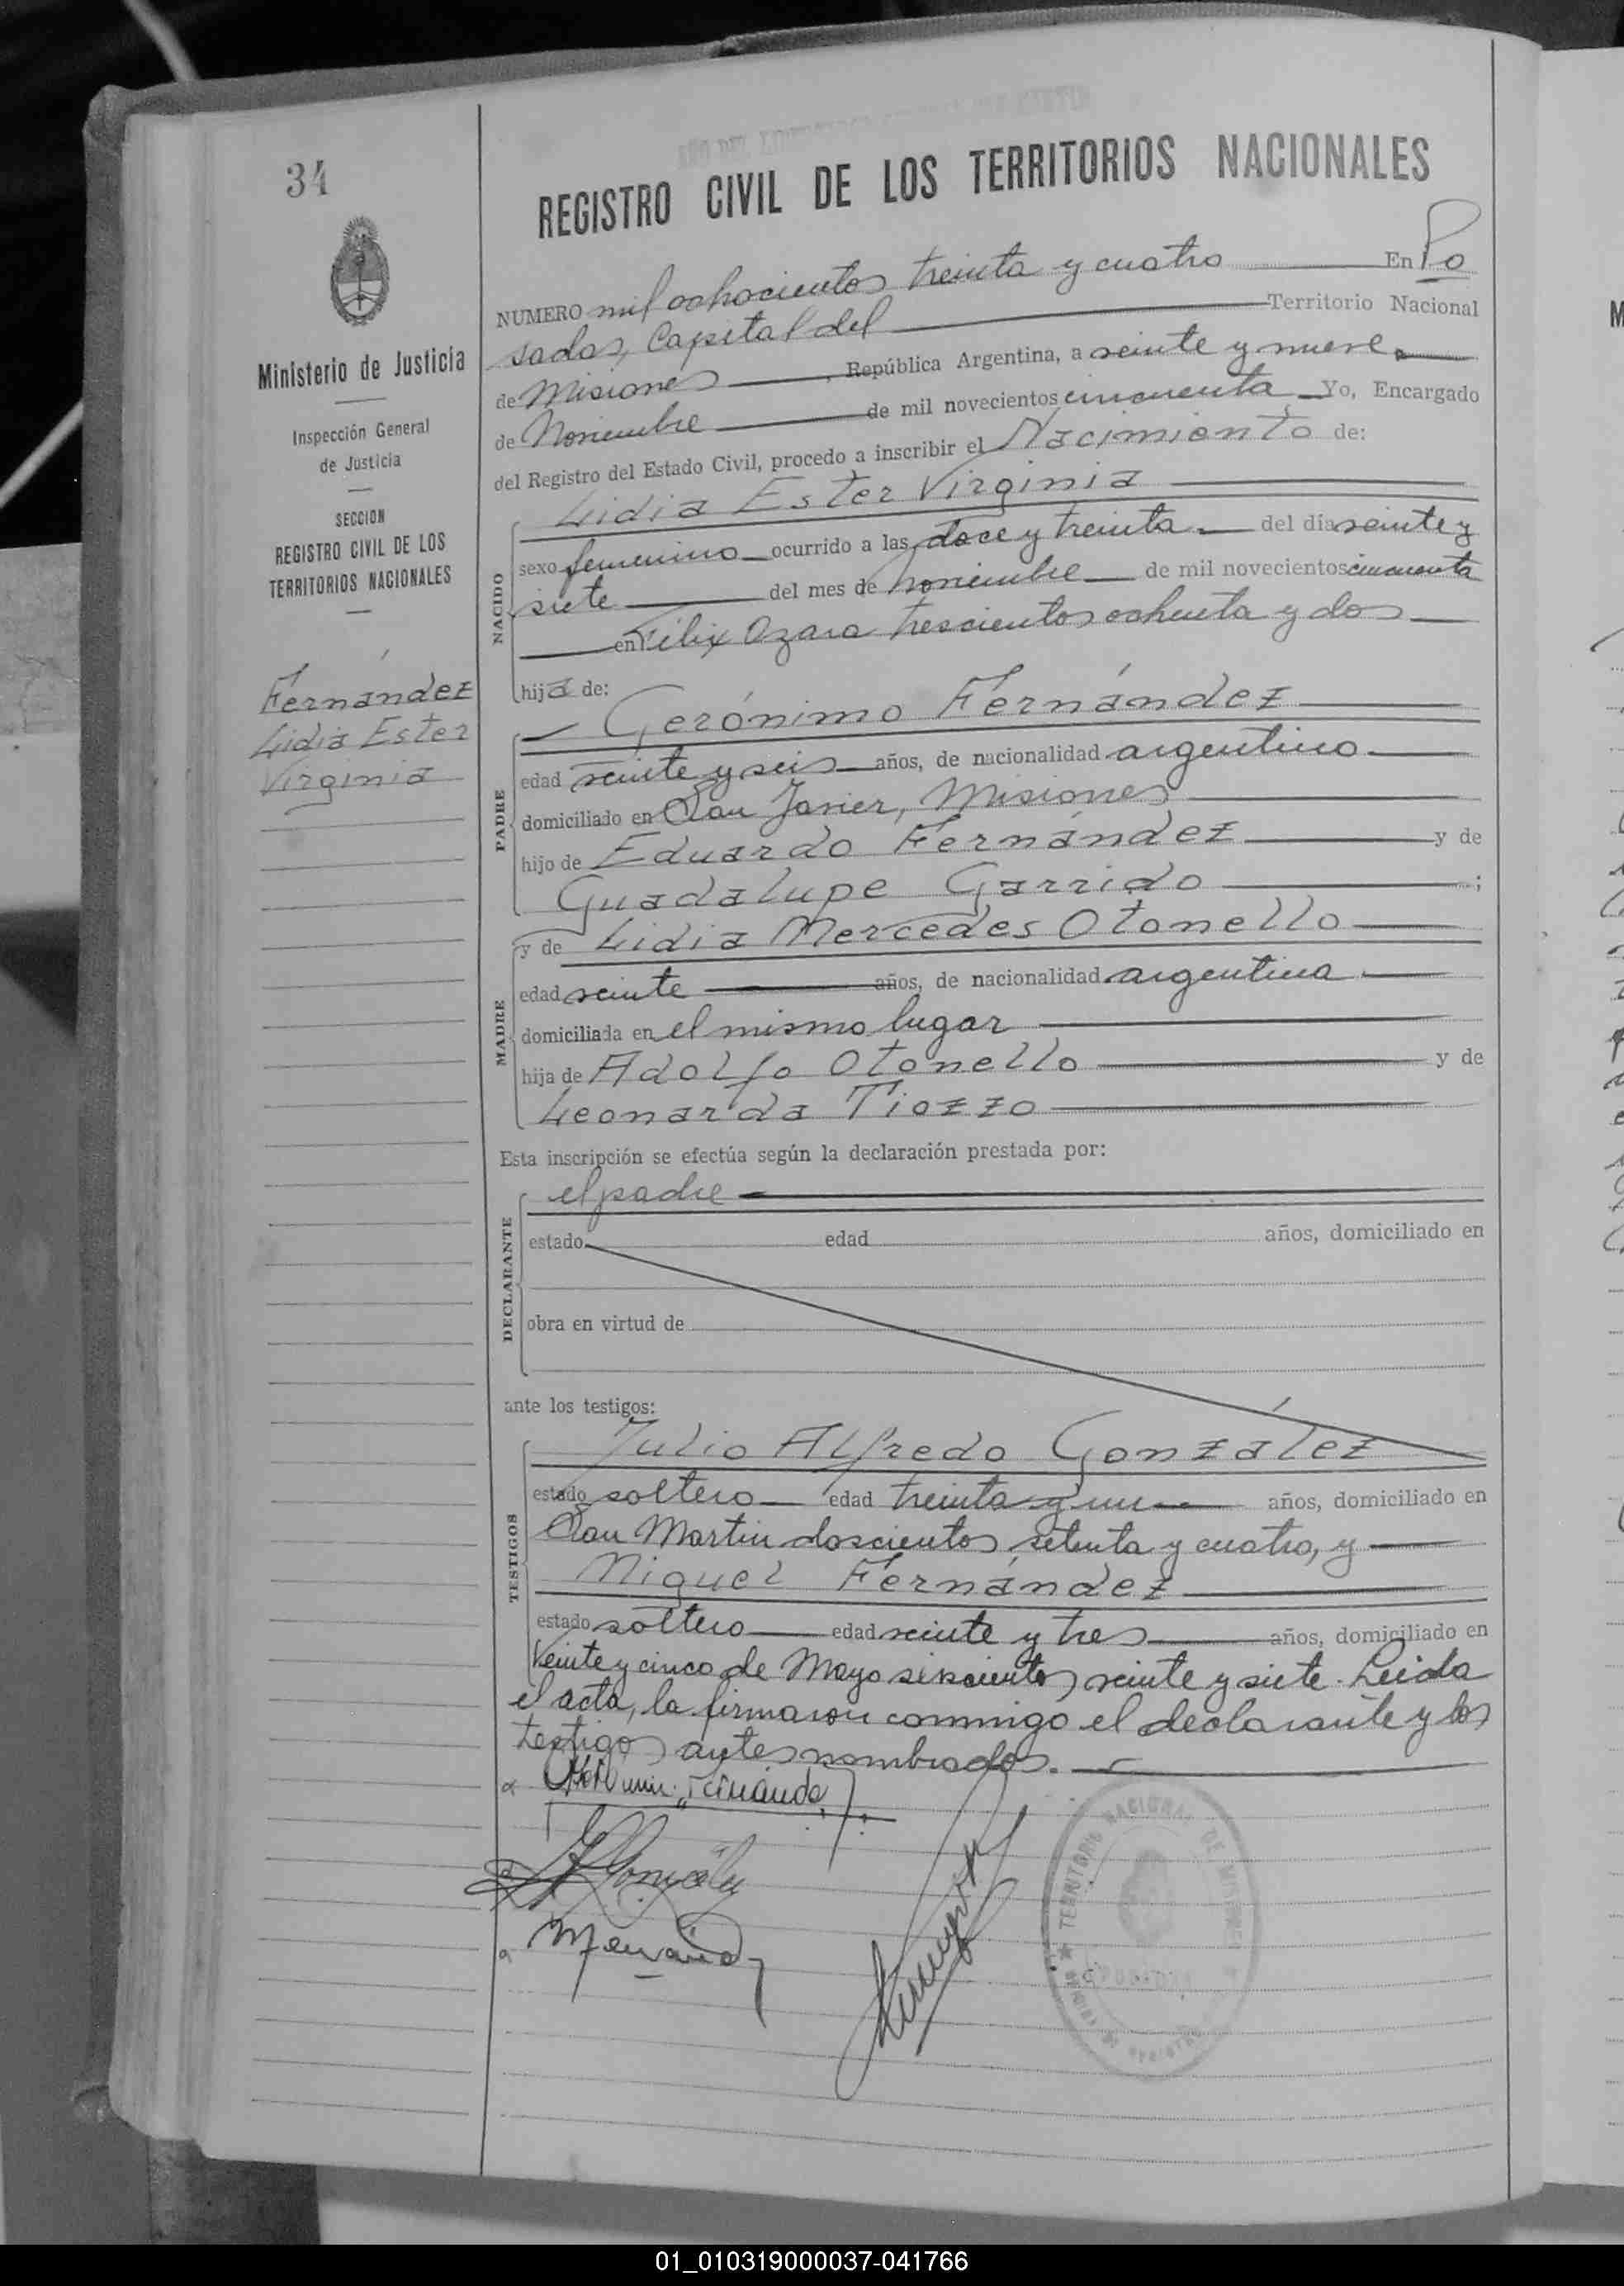 34
Ministerio de Justicia
Inspección General
de Justicia
SECCION
REGISTRO CIVIL DE LOS
TERRITORIOS NACIONALES
Fernández
Lidia Ester
Virginia
REGISTRO CIVIL DE LOS TERRITORIOS NACIONALES
NUMERO mil ochocientos treinta y cuatro En Po
sadas, Capital del Territorio Nacional
de Misiones, República Argentina, a veinte y nueve
de Noviembre de mil novecientos cincuenta Yo, Encargado
del Registro del Estado Civil, procedo a inscribir el Nacimiento de:
NACIDO
Lidia Ester Virginia
sexo femenino ocurrido a las doce y treinta del día veinte y
siete del mes de Noviembre de mil novecientos cincuenta
en Félix Azara trescientos ochenta y dos
hija de:
PADRE
Gerónimo Fernández
edad veinte y seis años, de nacionalidad argentino
domiciliado en San Javier, Misiones
hijo de Eduardo Fernández y de
Guadalupe Garrido ;
MADRE
y de Lidia Mercedes Otonello
edad veinte años, de nacionalidad argentina
domiciliada en el mismo lugar
hija de Adolfo Otonello y de
Leonarda Tiozzo
Esta inscripción se efectúa según la declaración prestada por:
DECLARANTE
el padre
estado edad años, domiciliado en
obra en virtud de
ante los testigos:
TESTIGOS
Julio Alfredo González
estado soltero edad treinta y un años, domiciliado en
San Martin doscientos setenta y cuatro, y
Miguel Fernández
estado soltero edad veinte y tres años, domiciliado en
Veinte y cinco de Mayo seiscientos veinte y siete. Leida
el acta, la firmaron conmigo el declarante y los
testigos antes nombrados.
TERRITORIO NACIONAL DE MISIONES
01_010319000037-041766